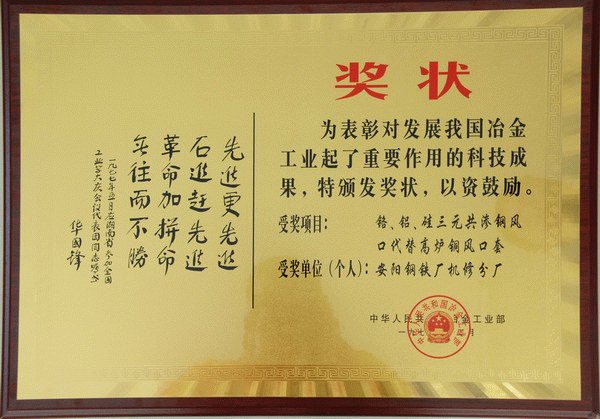 奖状
为表彰对发展我国冶金
工业起了重要作用的科技成
果，特颁发奖状，以资鼓励。
受奖项目： 铬、铝、硅三元共渗钢风
口代替高炉铜风口套
受奖单位（个人）：安阳钢铁厂机修分厂
中华人民共 冶金工业部
一九七 月
先進更先進
后進赶先進
革命加拼命
无往而不勝
一九七七年五月在湖南省参加全国
工业学大庆会议代表团同志嘱书
华國锋